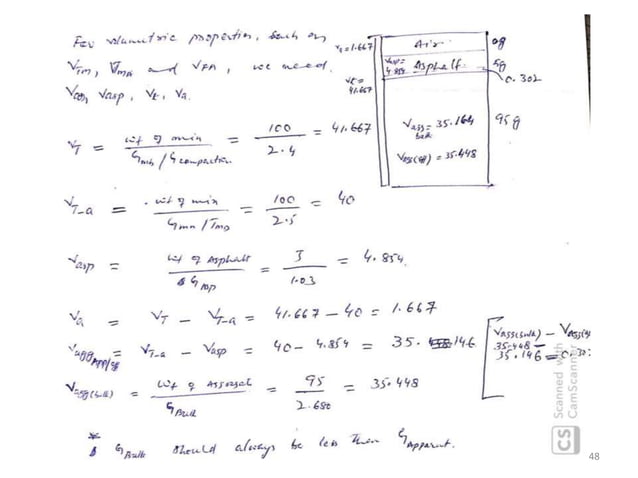 For volumetric properties, such as
VTM, VMA and VFA, we need.
Vasp, Vt, Va.
Va=1.667
Vt= 41.667
Air
0g
Vasp= 4.854
Asphalt
5g
0.302
Vagg bulk = 35.164
95g
Vagg(eff) = 35.448
VT = wt of mix / Gmb/Gcompaction = 100 / 2.4 = 41.667
VT-a = wt of mix / Gmm/Tmd = 100 / 2.5 = 40
Vasp = wt of Asphalt / Gasp = 5 / 1.03 = 4.854.
Va = VT - VT-a = 41.667 - 40 = 1.667
Vagg = VT-a - Vasp = 40 - 4.854 = 35.146
Vagg(bulk) = wt of / GBulk = 95 / 2.680 = 35.448
Vagg(bulk) -
35.448 -
35.146 = 0.30
* GBulk should always be less than GApparent.
CS
Scanned with
CamScanner
48